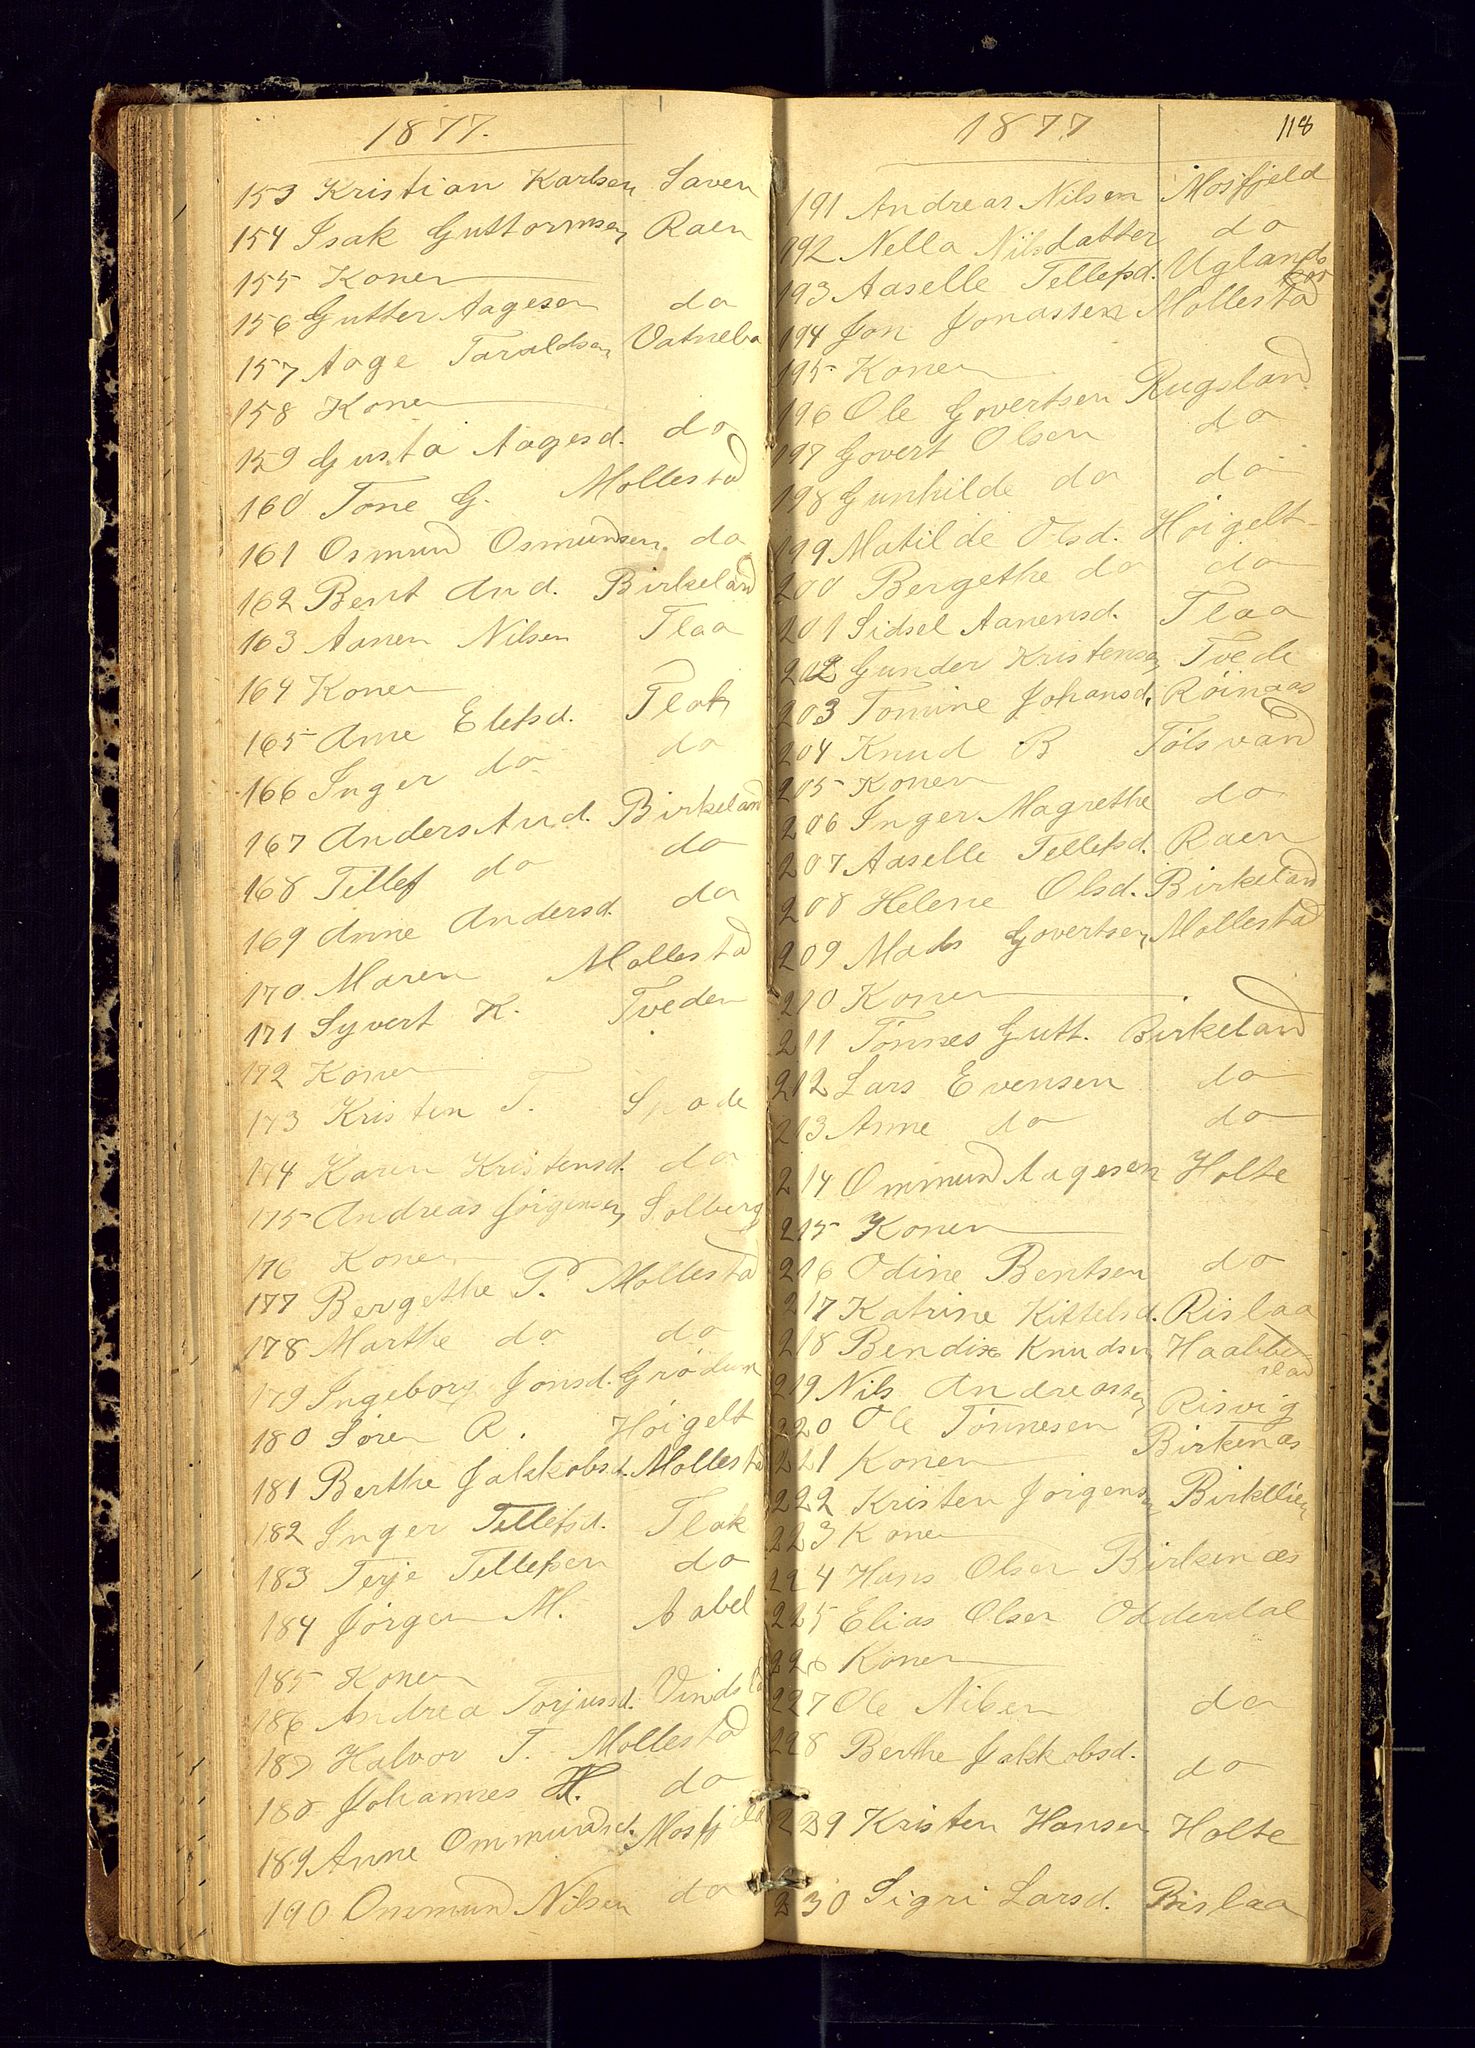 1877.
153 Kristian Karlsen Saven
154 Isak Guttormsen Raen
155 Konen
156 Gutter Aagesen do
157 Aage Taraldsen Vatnebo
158 Konen
159 Gusta Aagesd. do
160 Tone G. Mollestad
161 Osmund Osmundsen do
162 Bent And. Birkeland
163 Aanen Nilsen Flaa
164 Konen
165 Ane Elefsd. Flak
166 Inger do do
167 Anders And. Birkeland
168 Tellef do do
169 Anne Andersd. do
170 Maren Mollestad
171 Syvert K. Tveden
172 Konen
173 Kristen T. Spode
174 Karen Kristensd. do
175 Andreas Jørgensen Solberg
176 Konen
177 Bergethe T. Mollestad
178 Marthe do do
179 Ingeborg Jonsd. Grødum
180 Søren R. Høigelt
181 Berthe Jakkobsd. Mollestad
182 Inger Tellefsd. Flak
183 Terje Tellefsen do
184 Jørgen M. Aabel
185 Konen
186 Andrea Torjusd. Vindsla
187 Halvor T. Mollestad
188 Johannes H. do
189 Anne Ommundsd. Mosfjeld
190 Ommund Nilsen do
1877
118
191 Andreas Nilsen Mosfjeld
192 Nella Nilsdatter do
193 Aaselle Tellefsd. Uglands
194 Jon Jonassen Mollestad
195 Konen
196 Ole Govertsen Rugsland
197 Govert Olsen do
198 Gunhilde do do
199 Matilde Olsd. Høigelt
200 Bergethe do do
201 Sidsel Aanensd. Flaa
202 Gunder Kristensen Tvede
203 Tomine Johansd. Røinaas
204 Knud B Tolsvand
205 Konen
206 Inger Magrethe do
207 Aaselle Tellefsd. Raen
208 Helene Olsd. Birkeland
209 Mads Govertsen Mollestad
210 Konen
211 Tønnes Gutt. Birkeland
212 Lars Evensen do
213 Anne do do
214 Ommund Aagesen Holte
215 Konen
216 Odine Bentsen do
217 Katrine Kittelsd. Rislaa
218 Bendix Knudsen Haabbe
stad
219 Nils Andreassen Risvig
220 Ole Tønnesen Birkenæs
221 Konen
222 Kristen Jørgensen Birkelien
223 Konen
224 Hans Olsen Birkenæs
225 Elias Olsen Odderdal
226 Konen
227 Ole Nilsen do
228 Berthe Jakkobsd. do
239 Kristen Hansen Holte
230 Sigri Larsd. Rislaa